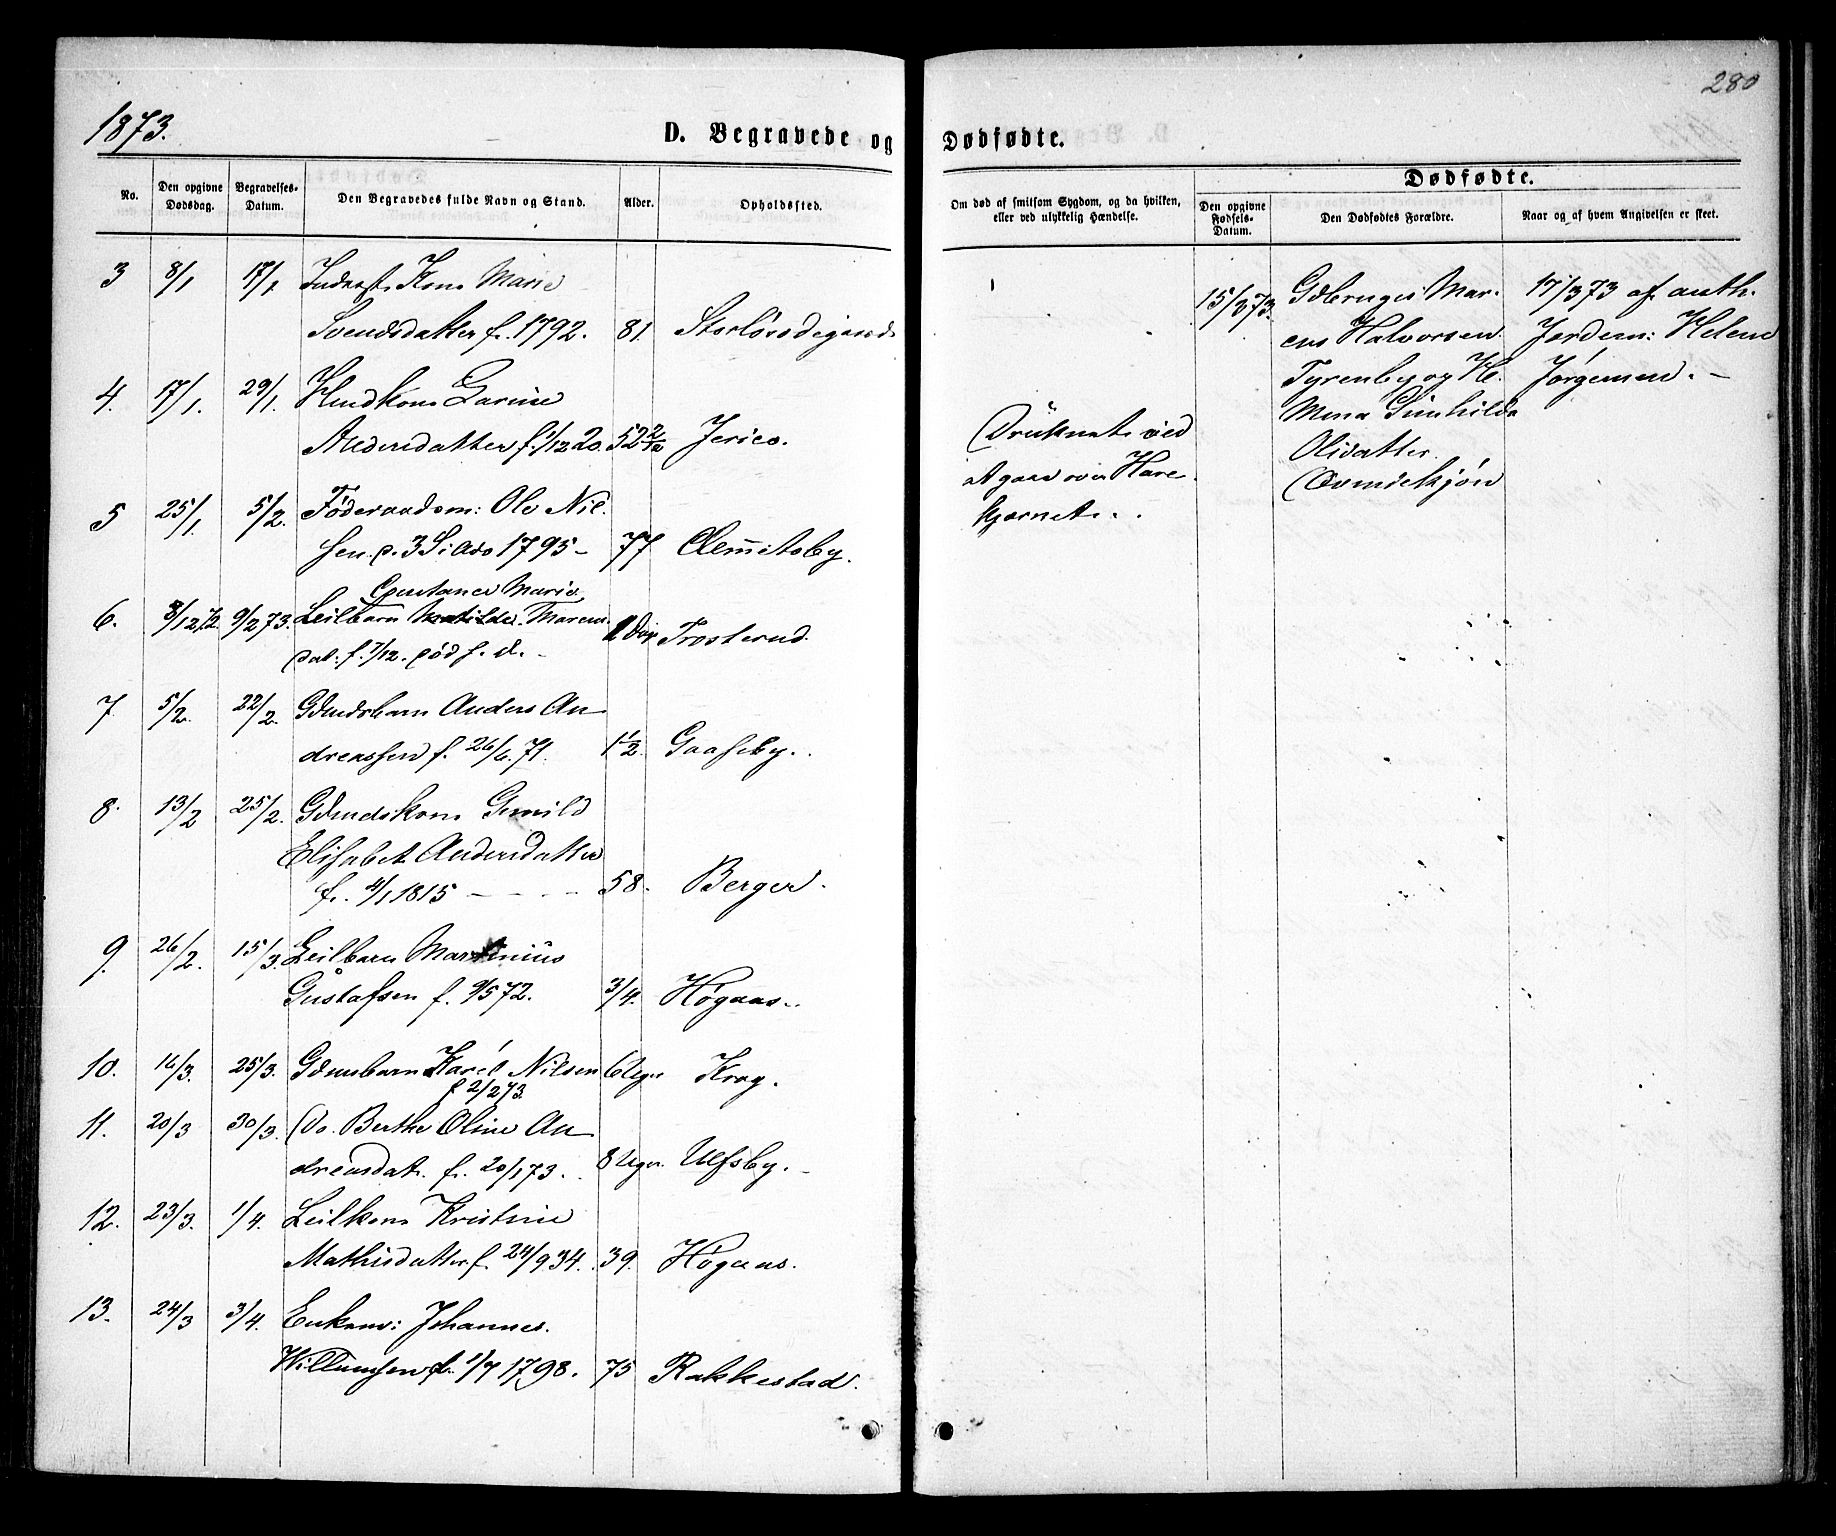 280
1873.
D. Begravede og Dødfødte.
Dødfødte.
No.
Den opgivne Dødsdag.
Begravelses-Datum.
Den Begravedes fulde Navn og Stand.
Alder.
Opholdsted.
Om død af smitsom Sygdom, og da hvilken,
eller ved ulykkelig Hændelse.
Den opgivne Fødsels-Datum.
Den Dødfødtes Forældre.
Naar og af hvem Angivelsen er skeet.
3 8/1 17/1 Inderst. Kone Marie
Svendsdatter f. 1792. 81.
4. 17/1. 29/1. Hmdkone Larine
Andersdatter f. 1/12 20. 52 2/12 Jerico.
Druknet ved
at gaa over Hare
kjærnet.
5 25/1. 5/2. Føderaadsm: Ole Nil
sen 1795 - 77 Clemmetsby.
Constance Marie
6. 8/12 72. 9/2 73. Leilbarn Matilde Maren
dat: f. 7/12. død s. d. - 1 Dag Trosterud.
7. 5/2. 22/2. Gdmdsbarn Anders An
dreassen f. 26/6. 71. 1 1/2. Gaaseby.
8. 13/2 25/2. Gdmdskone Gunild
Elisabet Andersdatter
f. 4/1 1815 - 58. Berger.
9. 26/2. 15/3. Leilbarn Martinius
Gustafsen f. 9/5 72. 3/4. Høgaas.
10. 16/3. 25/3. Gdmsbarn Karel Nilsen 6 Uger Krog.
f 2/2 73.
11. 20/3 30/3. Do. Berthe Oline An
dreasdat. f. 20/1 73. 8 Uger. Ulfsby.
12. 23/3. 1/4. Leilkone Kristine
Mathisdatter f. 24/9 34. 39. Høgaas.
13. 24/3 3/4. Enkem: Johannes
Willumsen f. 1/7 1798. 75 Rakkestad.
15/3 73. Gdbruger Mar
cus Halvorsen
Tyrenby og H.
Mina Gunhilda
Olsdatter
17/3 73 af auth.
Jordem: Helene
Jørgensen. -